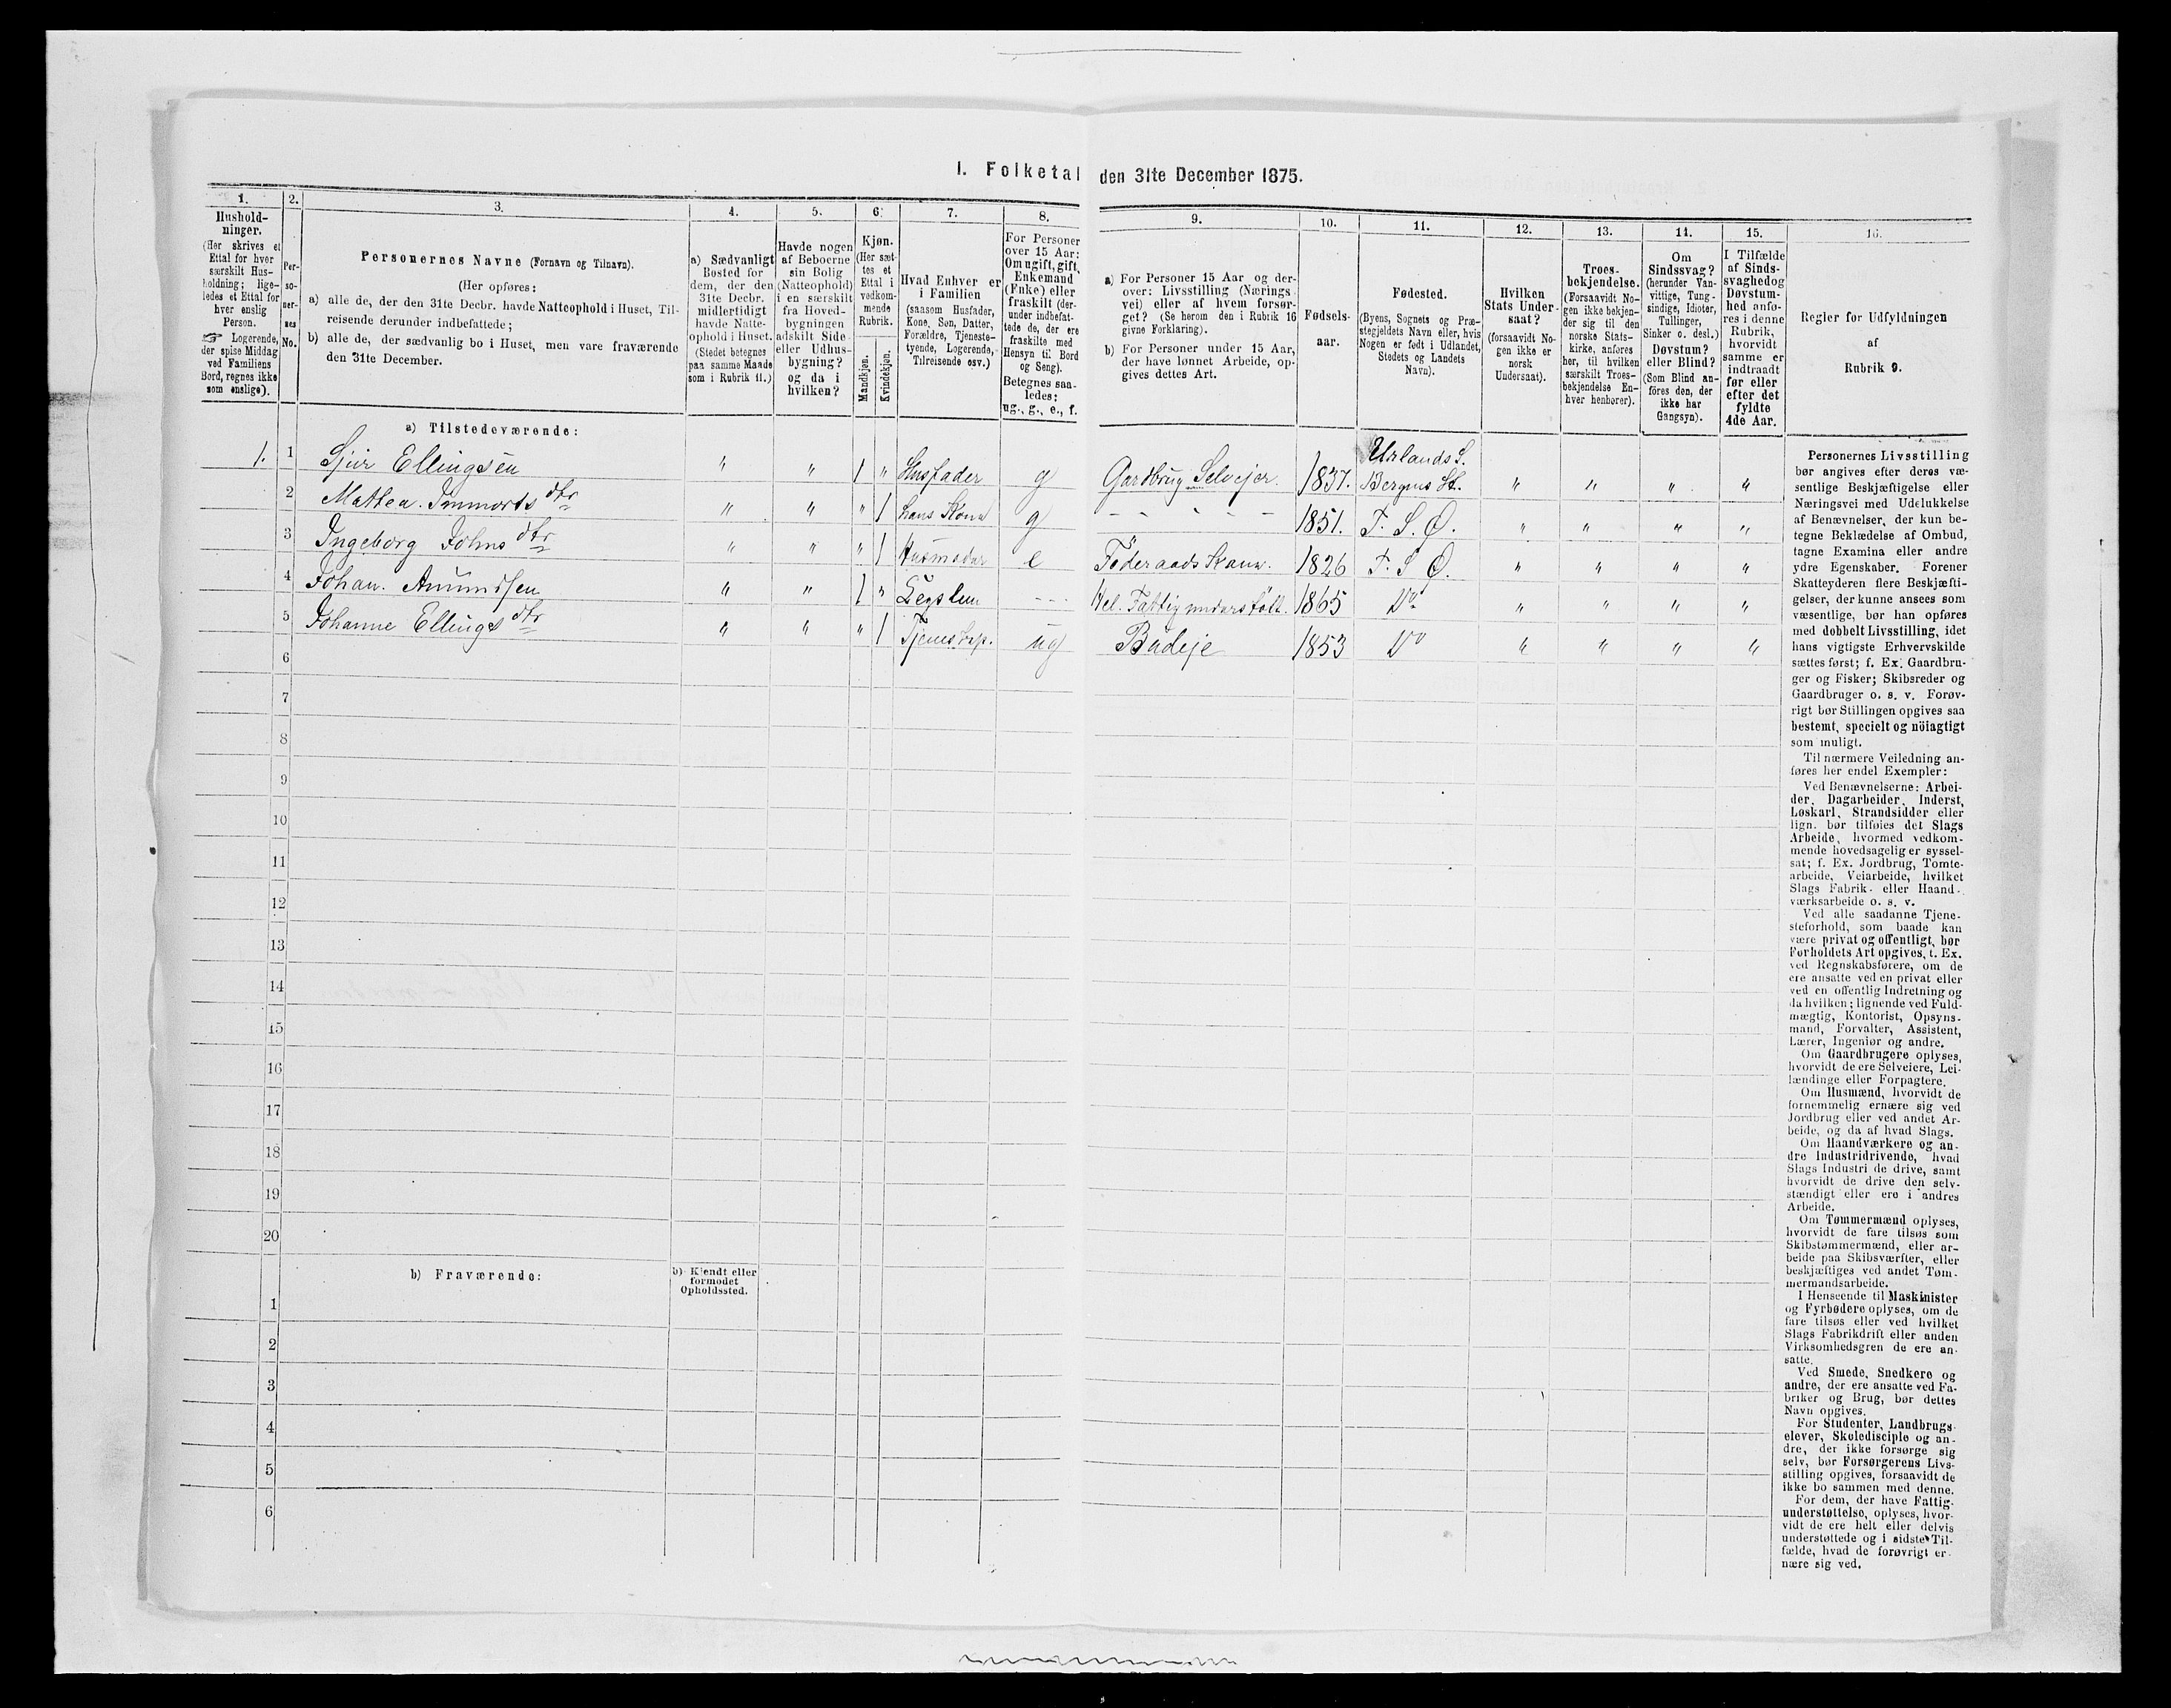 I. Folketal den 31te December 1875.
1.
Hushold-
ninger.
(Her skrives et
Ettal for hver
særskilt Hus-
holdning; lige-
ledes et Ettal for
hver enslig
Person.
☞ Logerende,
der spise Middag
ved Familiens
Bord, regnes ikke
som enslige).
2.
Per-
so-
ner-
nes
No.
3.
Personernes Navne (Fornavn og Tilnavn).
(Her opføres:
a) alle de, der den 31te Decbr. havde Natteophold i Huset, Til-
reisende derunder indbefattede;
b) alle de, der sædvanlig bo i Huset, men vare fraværende
den 31te December.
4.
a) Sædvanligt
Bosted for
dem, der den
31te Decbr.
midlertidigt
havde Natte-
ophold i Huset.
(Stedet betegnes
paa samme Maade
som i Rubrik 11.)
5.
Havde nogen
af Beboerne
sin Bolig
(Natteophold)
i en særskilt
fra Hoved-
bygningen
adskilt Side-
eller Udhus-
bygning?
og da i
hvilken?
6.
Kjøn.
(Her sæt-
tes et
Ettal i
vedkom-
mende
Rubrik.
Mandkjøn.
Kvindekjøn.
7.
Hvad Enhver er
i Familien
(saasom Husfader,
Kone, Søn, Datter,
Forældre, Tjeneste-
tyende, Logerende,
Tilreisende osv.)
8.
For Personer
over 15 Aar:
Om ugift, gift,
Enkemand
(Enke) eller
fraskilt (der-
under indbefat-
tede de, der ere
fraskilte med
Hensyn til Bord
og Seng).
Betegnes saa-
ledes:
ug., g., e., f.
9.
a) For Personer 15 Aar og der-
over: Livsstilling (Nærings-
vei) eller af hvem forsør-
get? (Se herom den i Rubrik 16
givne Forklaring).
b) For Personer under 15 Aar,
der have lønnet Arbeide, op-
gives dettes Art.
10.
Fødsels-
aar.
11.
Fødested.
(Byens, Sognets og Præ-
stegjeldets Navn eller, hvis
Nogen er født i Udlandet,
Stedets og Landets
Navn).
12.
Hvilken
Stats Under-
saat?
(forsaavidt No-
gen ikke er
norsk
Undersaat).
13.
Troes-
bekjendelse.
(Forsaavidt No-
gen ikke bekjen-
der sig til den
norske Stats-
kirke, anføres
her, til hvilken
særskilt Troes-
bekjendelse En-
hver henhører).
14.
Om
Sindssvag?
(herunder Van-
vittige, Tung-
sindige, Idioter,
Tullinger,
Sinker o. desl.)
Døvstum?
eller Blind?
(Som Blind an-
føres den, der
ikke har
Gangsyn).
15.
I Tilfælde
af Sinds-
svaghed og
Døvstum-
hed anfø-
res i denne
Rubrik,
hvorvidt
samme er
indtraadt
før eller
efter det
fyldte
4de Aar.
16.
Regler for Udfyldningen
af
Rubrik 9.
a) Tilstedeværende:
1. 1 Sjur Ellingsen " " 1 " Husfader g Gardbrug Selvejer. 1837. Urlands S. Bergens St. " " " "
2 Mattea " " " 1 hans Kone g - - - - - 1851. T. S. Ø. " " " "
3 Ingeborg Johns dtr " " " 1 Husmoder e Föderaads Kone. 1826 T. S Ø. " " " "
4 Johan. Amundsen " " 1 " Legslem --- Hel. Fattigunderstött. 1865 Do " " " "
5 Johanne Ellings dtr " " " 1 ug Budeje 1853 Do " " " "
6
7
8
9
10
11
12
13
14
15
16
17
18
19
20
b) Fraværende:
b) Kjendt eller
formodet
Opholdssted.
1
2
3
4
5
6
Personernes Livsstilling
bør angives efter deres væ-
sentlige Beskjæftigelse eller
Næringsvei med Udelukkelse
af Benævnelser, der kun be-
tegne Beklædelse af Ombud,
tagne Examina eller andre
ydre Egenskaber. Forener
Skatteyderen flere Beskjæfti-
gelser, der kunne ansees som
væsentlige, bør han opføres
med dobbelt Livsstilling, idet
hans vigtigste Erhvervskilde
sættes først; f. Ex. Gaardbru-
ger og Fisker; Skibsreder og
Gaardbruger o. s. v. Forøv-
rigt bør Stillingen opgives saa
bestemt, specielt og nöiagtigt
som muligt.
Til nærmere Veiledning an-
føres her endel Exempler:
Ved Benævnelserne: Arbei-
der, Dagarbeider, Inderst,
Løskarl, Strandsidder eller
lign. bør tilføies det Slags
Arbeide, hvormed vedkom-
mende hovedsagelig er syssel-
sat; f. Ex. Jordbrug, Tomte-
arbeide, Veiarbeide, hvilket
Slags Fabrik- eller Haand-
værksarbeide o. s. v.
Ved alle saadanne Tjene-
steforhold, som baade kan
være privat og offentligt, bør
Forholdets Art opgives, t. Ex.
ved Regnskabsførere, om de
ere ansatte ved en privat eller
ved en offentlig Indretning og
da hvilken; lignende ved Fuld-
mægtig, Kontorist, Opsyns-
mand, Forvalter, Assistent,
Lærer, Ingeniør og andre.
Om Gaardbrugere oplyses,
hvorvidt de ere Selveiere, Lei-
lændinge eller Forpagtere.
Om Husmænd, hvorvidt de
fornemmelig ernære sig ved
Jordbrug eller ved andet Ar-
beide, og da af hvad Slags.
Om Haandværkere og an-
dre Industridrivende, hvad
Slags Industri de drive, samt
hvorvidt de drive den selv-
stændigt eller ere i andres
Arbeide.
Om Tømmermænd oplyses,
hvorvidt de fare tilsøs som
Skibstømmermænd, eller ar-
beide paa Skibsværfter, eller
beskjæftiges ved andet Tøm-
mermandsarbeide.
I Henseende til Maskinister
og Fyrbødere oplyses, om de
fare tilsøs eller ved hvilket
Slags Fabrikdrift eller anden
Virksomhedsgren de ere an-
satte.
Ved Smede, Snedkere og
andre, der ere ansatte ved Fa-
briker og Brug, bør dettes
Navn opgives.
For Studenter, Landbrugs-
elever, Skoledisciple og an-
dre, der ikke forsørge sig
selv, bør Forsørgerens Livs-
stilling opgives, forsaavidt de
ikke bo sammen med denne.
For dem, der have Fattig-
understøttelse, oplyses, hvor-
vidt de ere helt eller delvis
understøttede og i sidste Til-
fælde, hvad de forøvrigt er-
nære sig ved.